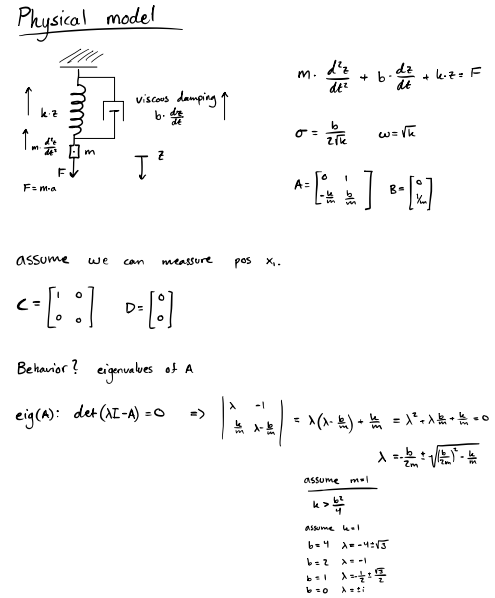 Physical model
m · d²z/dt² + b · dz/dt + k·z = F
viscous damping
b · dz/dt
k·z
m · d²z/dt²
m
z
F
F=m·a
σ = b/2√k ω=√k
A = [0 1; -k/m b/m] B = [0; 1/m]
assume we can meassure pos x₁.
C = [1 0; 0 0] D = [0; 0]
Behavior? eigenvalues of A
eig(A): det(λI-A) = 0 => |λ -1; k/m λ-b/m| = λ(λ-b/m) + k/m = λ² + λ b/m + k/m = 0
λ = -b/2m ± √((b/2m)² - k/m)
assume m=1
k > b²/4
assume k=1
b=4 λ=-4±√3
b=2 λ=-1
b=1 λ=-1/2 ± √3/2
b=0 λ=±i